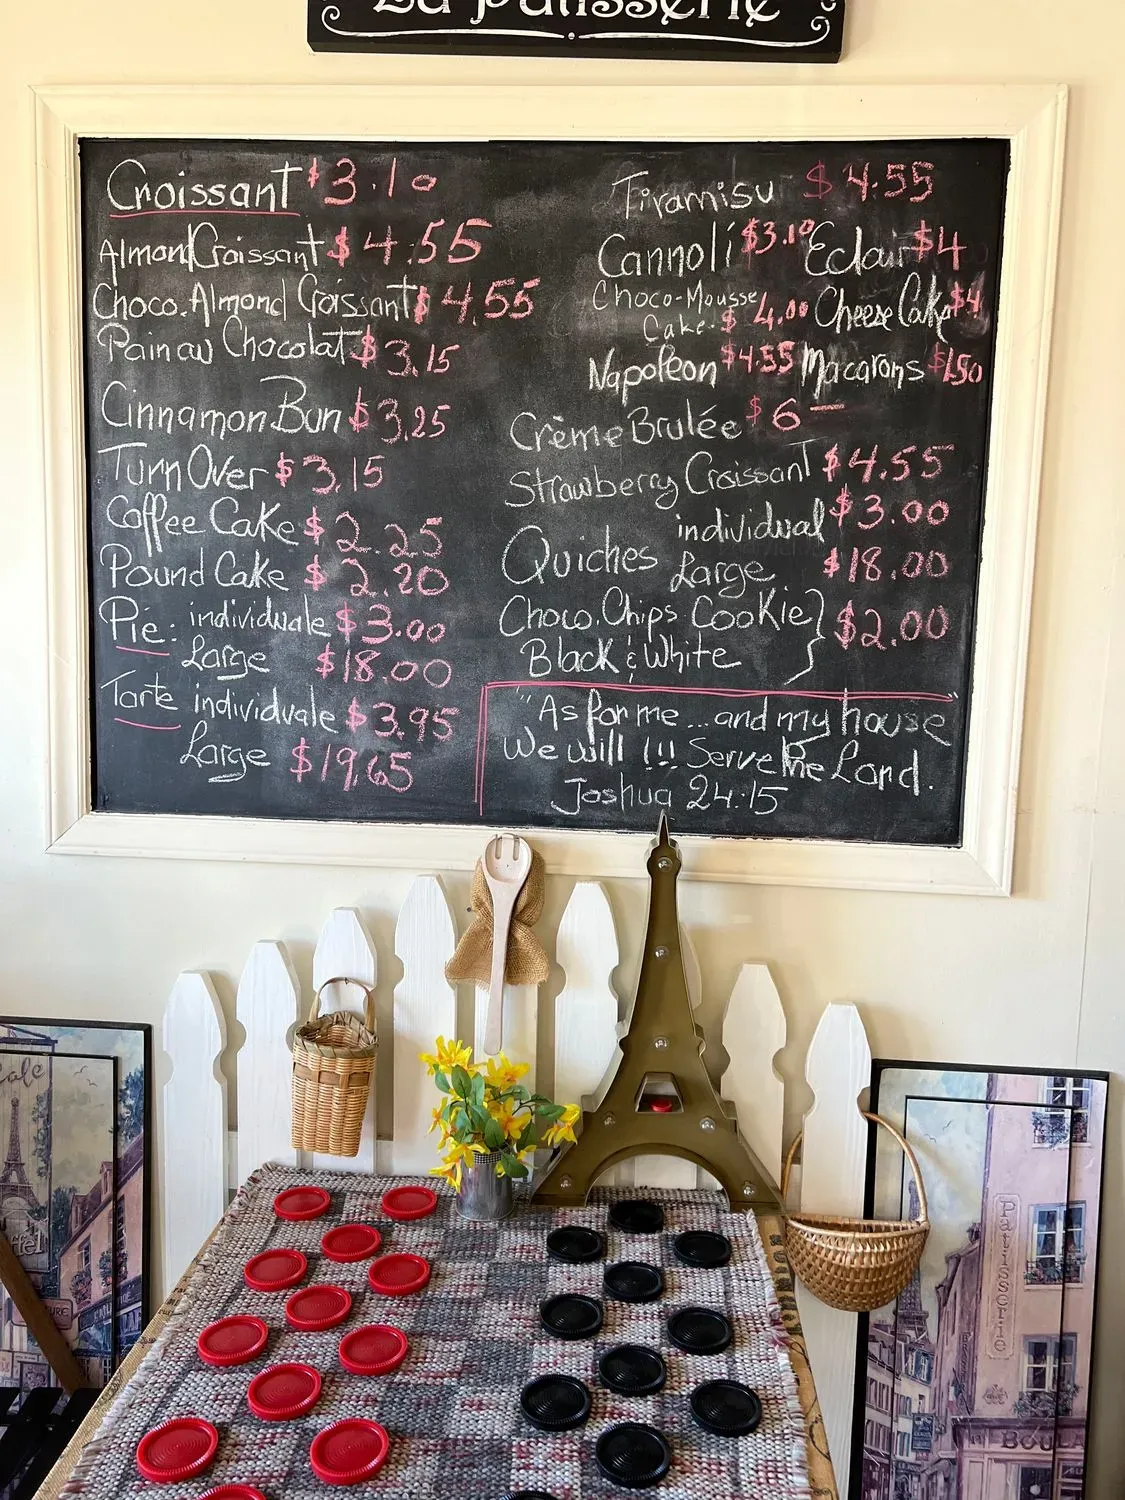 La Patisserie
Croissant $3.10
Almond Croissant $4.55
Choco.Almond Croissant $4.55
Pain au Chocolat $3.15
Cinnamon Bun $3.25
Turn Over $3.15
Coffee Cake $2.25
Pound Cake $2.20
Pie: individuale $3.00
Large $18.00
Tarte individuale $3.95
Large $19.65
Tiramisu $4.55
Cannoli $3.10 Eclair $4
Choco-Mousse
Cake $4.00 Cheese Cake $4
Napoleon $4.55 Macarons $1.50
Crème Brulée $6—
Strawberry Croissant $4.55
individual $3.00
Quiches Large $18.00
Choco.Chips Cookie
Black & White } $2.00
"As for me... and my house"
We will !!! Serve the Lord.
Joshua 24:15
Café
Patisserie
BOULA